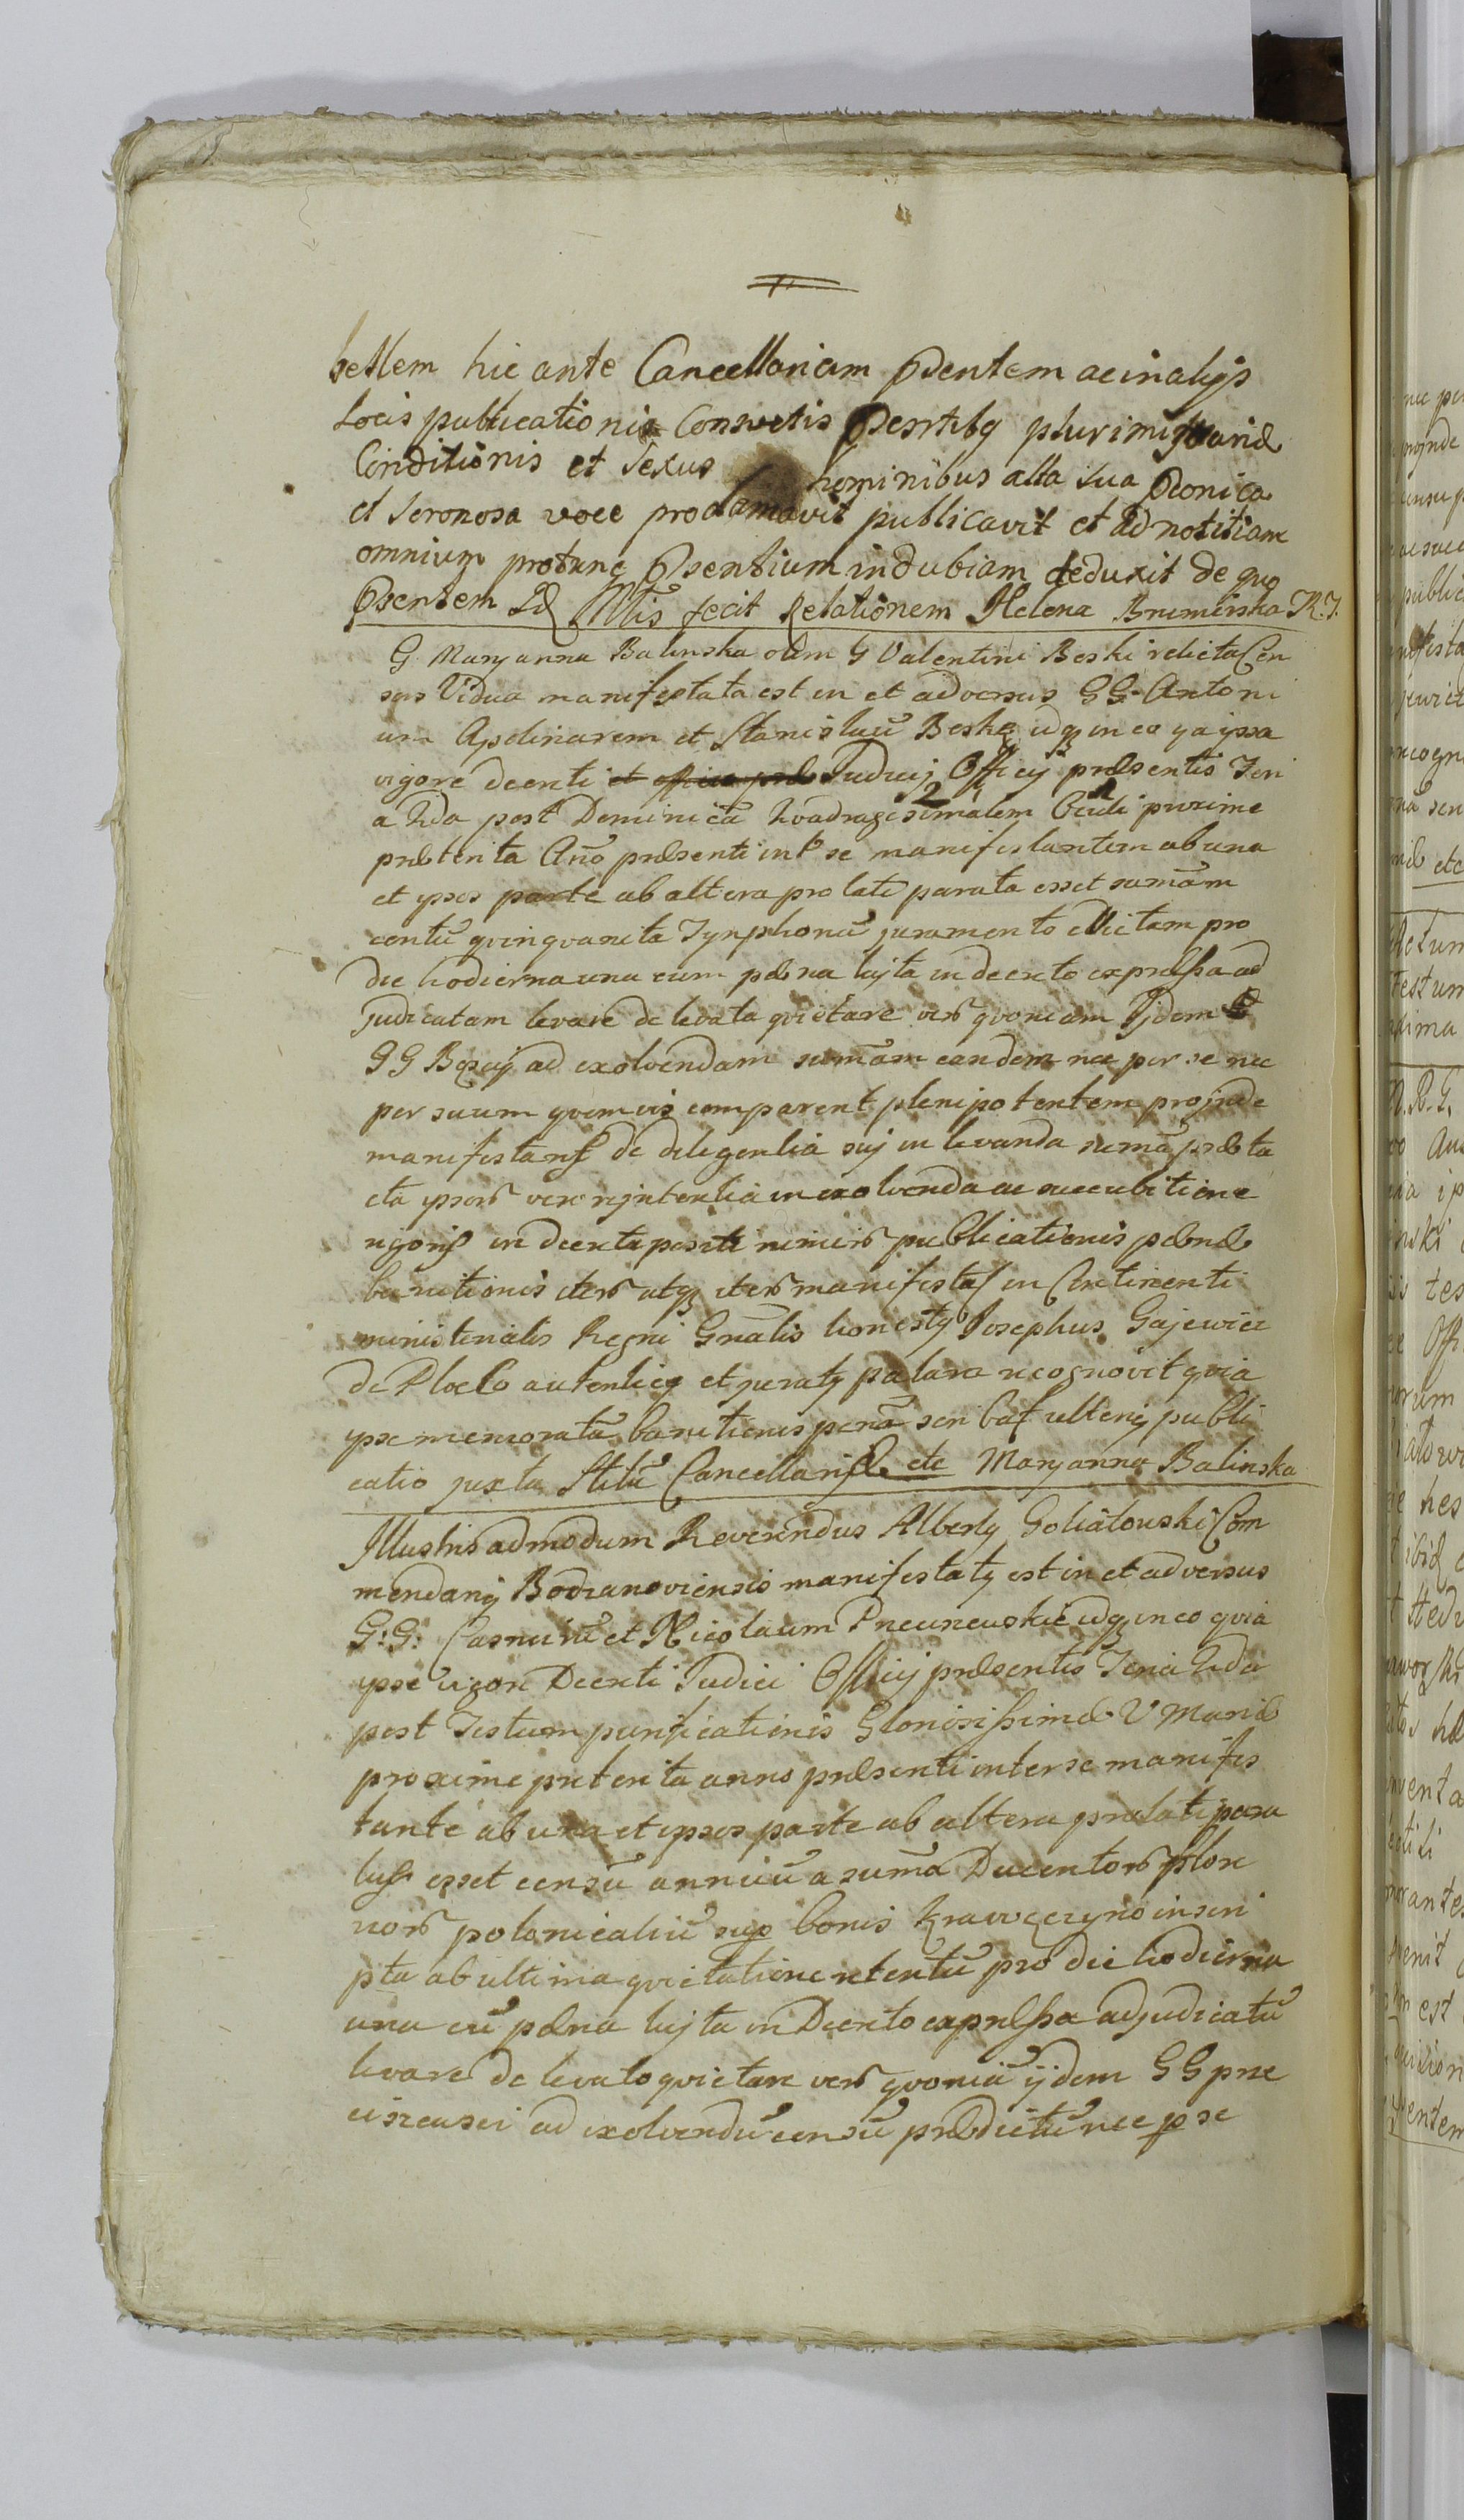 bellem hic ante Cancellariam Psentem ac in alijs
Locis publicationis Consvetis Psentibq plurimis variæ
Conditionis et Sexus hominibus alta sua Pconica
et Soronosa voce proclamavit publicavit et ad notitiam
omnium protunc Psentium indubiam deduxit de quo
Psentem Idq Mtlis fecit Relationem Helena Brumirska R.J.
G Maryanna Balinska olim G Valentini Beski relicta Con
sors Vidua manifestata est in et adversus GG Antoni
um Apolinarem et Stanislaū Beskę idq in eo qa ipsa
vigore decreti et officii præ Judicij Officij præsentis Feri
a 2da post Dominicā Kvadragesimalem Oculi proxime
præterita Ano præsenti int se manifestantem ab una
et ipsos parte ab altera pro lati parata esset sumām
centū qvinqvaneta Tynphonū juramento evictam pro
die hodierna una cum pæna lujta in decreto expræssa ad
judicatam levare de levata qvietare vero qvoniam Ijdem
GG Bescij ad exolvendam sumām eandem nec per se nec
per suum qvemvis comparent plenipotentem projnde
manifestans de deligentia suj in levanda suma prædta
cta ipsor vero rejntentia in exolvenda ac succubitione
rigoris in decreto positi nimir publicationis pænæ
banitionis iter atq iter manifestat in Continenti
ministerialis Regni Gnalis honestq Josephus Gajewicz
de Plocko autenticq et juratq palam recognovit qvia
ipse memoratā banitionis penā seribat ulteriq publi
catio juxta Stilū Cancellariæ etc Maryanna Balinska
Illustris admodum Reverendus Albertq Goliatowski Com
mendariq Bodzanoviensis manifestatq est in et adversus
G: G: Casmirū et Nicolaum Pneuneuskie idq in eo qvia
ipse vigore Decreti Judici Officij præsentis Feria 2da
post Festum purificationis Gloriosissimæ V Mariæ
proxime preterita anno præsenti inter se manifes
tante ab una et ipsos parte ab altera prolati para
tus esset censū annuū a sumā Ducentor flore
nor polonicaliū sup bonis Krawęczyno inscri
pta ab ultima qvietatione retentū pro die hodierna
una cū pæna lujta in Decreto expræssa adjudicatū
levare de levato qvietare vero qvoniā ijdem GG pne
ad exolvendū censū prædictū nec p se